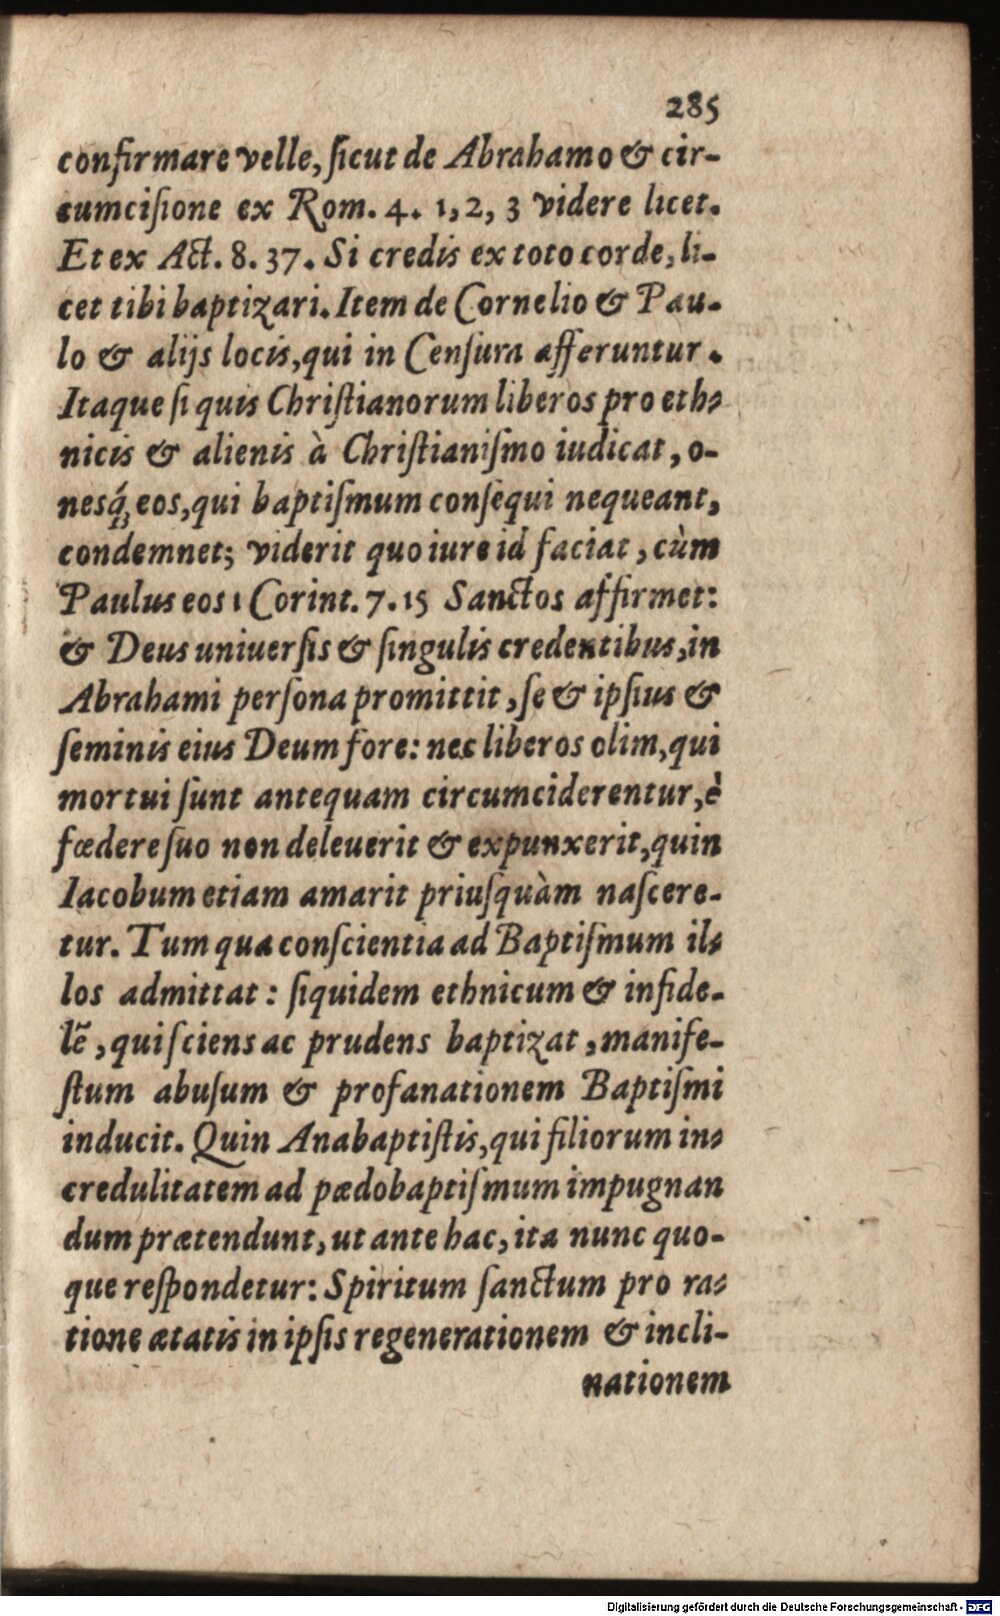 285
confirmare velle, ſicut de Abrahamo & cir-
cumciſione ex Rom. 4. 1, 2, 3 videre licet.
Et ex Act. 8. 37. Si credis ex toto corde, li-
cet tibi baptizari. Item de Cornelio & Pau-
lo & alijs locis, qui in Cenſura afferuntur.
Itaque ſi quis Chriſtianorum liberos pro eth-
nicis & alienis à Chriſtianiſmo iudicat, o-
nesq́; eos, qui baptiſmum conſequi nequeant,
condemnet; viderit quo iure id faciat, cùm
Paulus eos 1 Corint. 7. 15 Sanctos affirmet:
& Deus uniuerſis & ſingulis credentibus, in
Abrahami perſona promittit, ſe & ipſius &
ſeminis eius Deum fore: nec liberos olim, qui
mortui ſunt antequam circumciderentur, è
fœdere ſuo non deleuerit & expunxerit, quin
Iacobum etiam amarit priuſquàm naſcere-
tur. Tum qua conſcientia ad Baptiſmum il-
los admittat: ſiquidem ethnicum & infide-
lē, qui ſciens ac prudens baptizat, manife-
ſtum abuſum & profanationem Baptiſmi
inducit. Quin Anabaptiſtis, qui filiorum in-
credulitatem ad pædobaptiſmum impugnan
dum prætendunt, ut ante hac, ita nunc quo-
que reſpondetur: Spiritum ſanctum pro ra-
tione ætatis in ipſis regenerationem & incli-
nationem
Digitalisierung gefördert durch die Deutsche Forschungsgemeinschaft - DFG